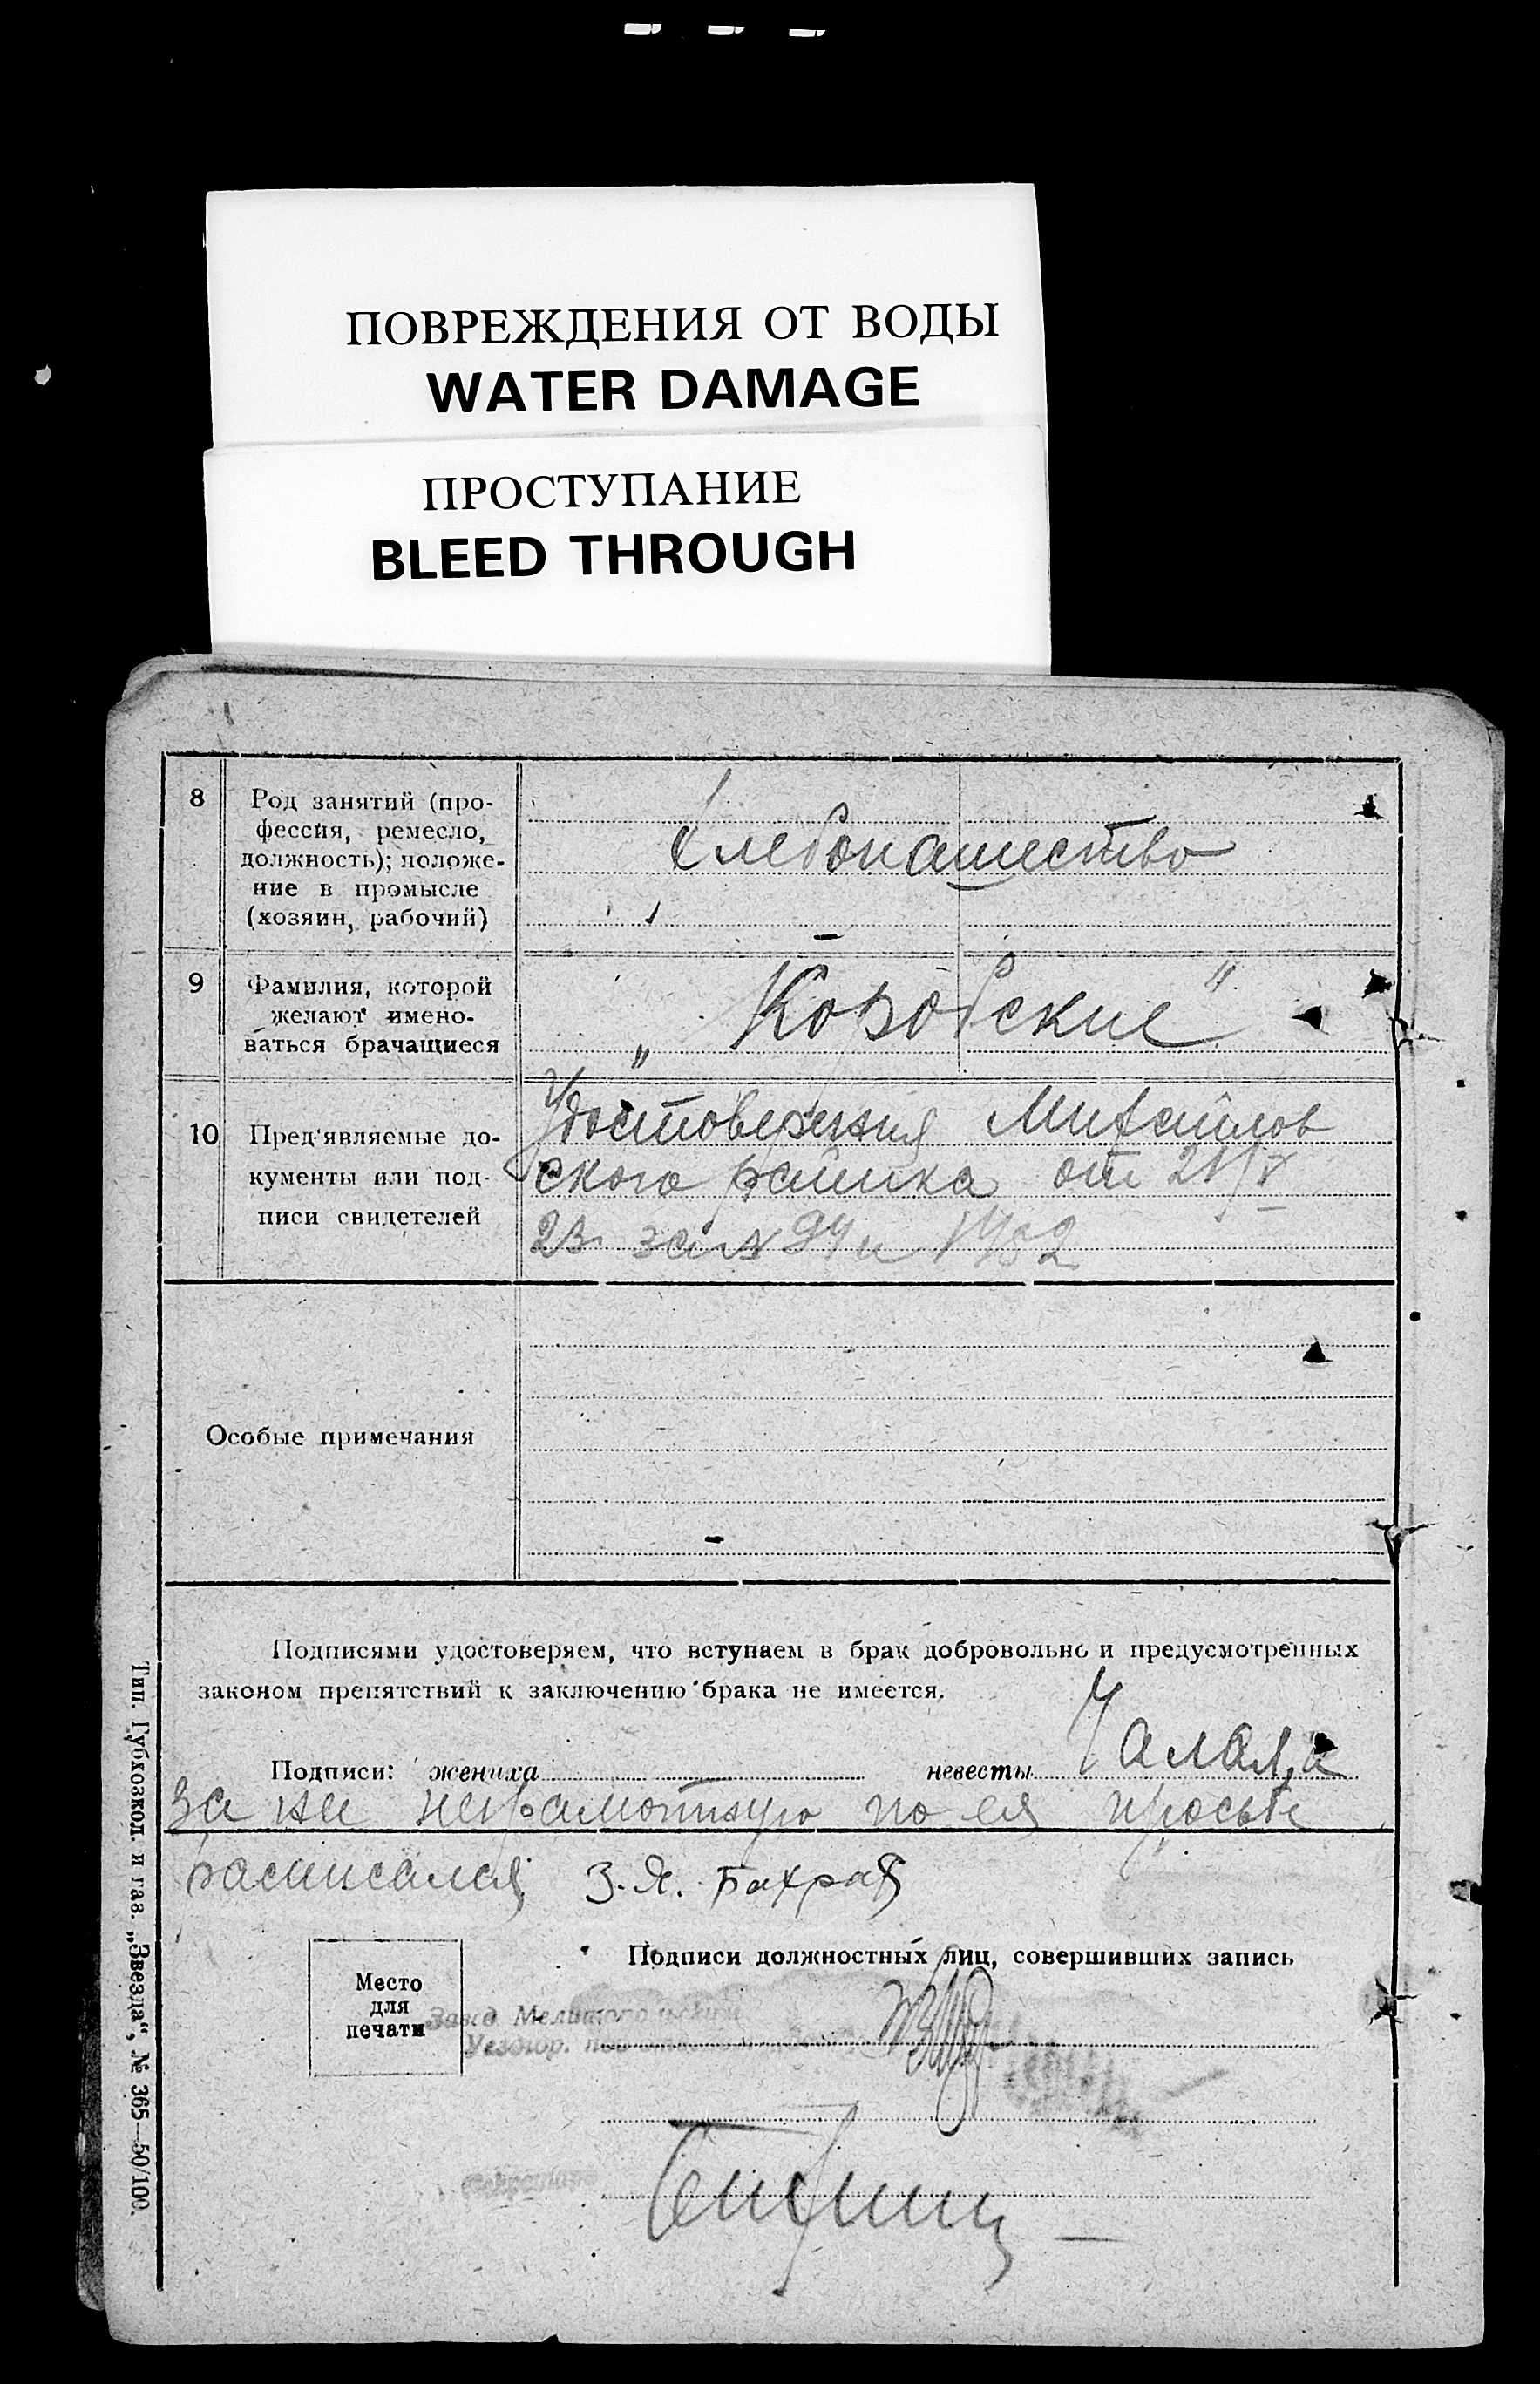 ПОВРЕЖДЕНИЯ ОТ ВОДЫ
WATER DAMAGE
ПРОСТУПАНИЕ
BLEED THROUGH
8
Род занятий (про-
фессия, ремесло,
должность); положе-
ние в промысле
(хозяин, рабочий)
Хлебопашество
9
Фамилия, которой
желают имено-
ваться брачащиеся
„ Коробские "
10
Пред'являемые до-
кументы или под-
писи свидетелей
Удостоверения Михайлов
ского райика от 21/V
23 за № 94 и
Особые примечания
Подписями удостоверяем, что вступаем в брак добровольно и предусмотренных
законом препятствий к заключению брака не имеется.
Подписи: жениха невесты Чалая, а
за не неграмотную по ея просьбе
расписался З. Я.
Подписи должностных лиц, совершивших запись
Место
для
печати
Завед.
Уездгор.
Тип. Губхозкол. и газ. „Звезда", № 365—50/100.